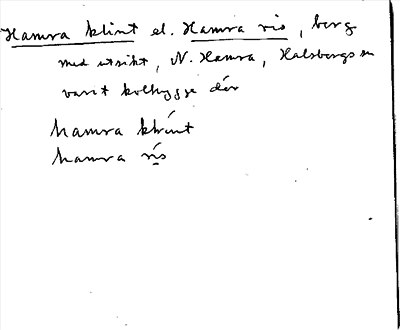 Hamra klint el. Hamra ris, berg
med utsikt, N. Hamra, Halsbergs sn
varit kolhygge där
hamra klint
hamra ris